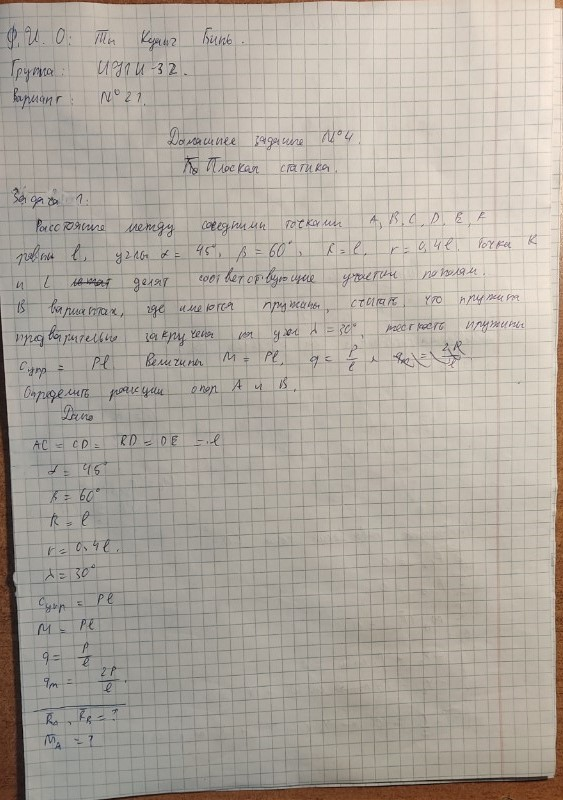 Ф.И.О: Ти Куанг Бинь.
Группа: ИДПИ-32.
Вариант: №21.
Домашнее задание №4.
Плоская статика.
Задача 1.
Расстояние между соседними точками A, B, C, D, E, F
равны l, углы α = 45°, β = 60°, R = l, r = 0,4l. Точка K
и L делят соответствующие участки пополам.
В вариантах, где имеются пружины, считать что пружина
предварительно закручена на угол λ = 30°, жесткость пружины
Cупр = Pl Величины M = Pl, q = P/l и
Определить реакции опор A и B.
Дано
AC = CD = BD = DE = l
α = 45°
β = 60°
R = l
r = 0,4l.
λ = 30°
Cупр = Pl
M = Pl
q = P/l
qm = 2P/l.
R̄A, R̄B = ?
M̄A = ?